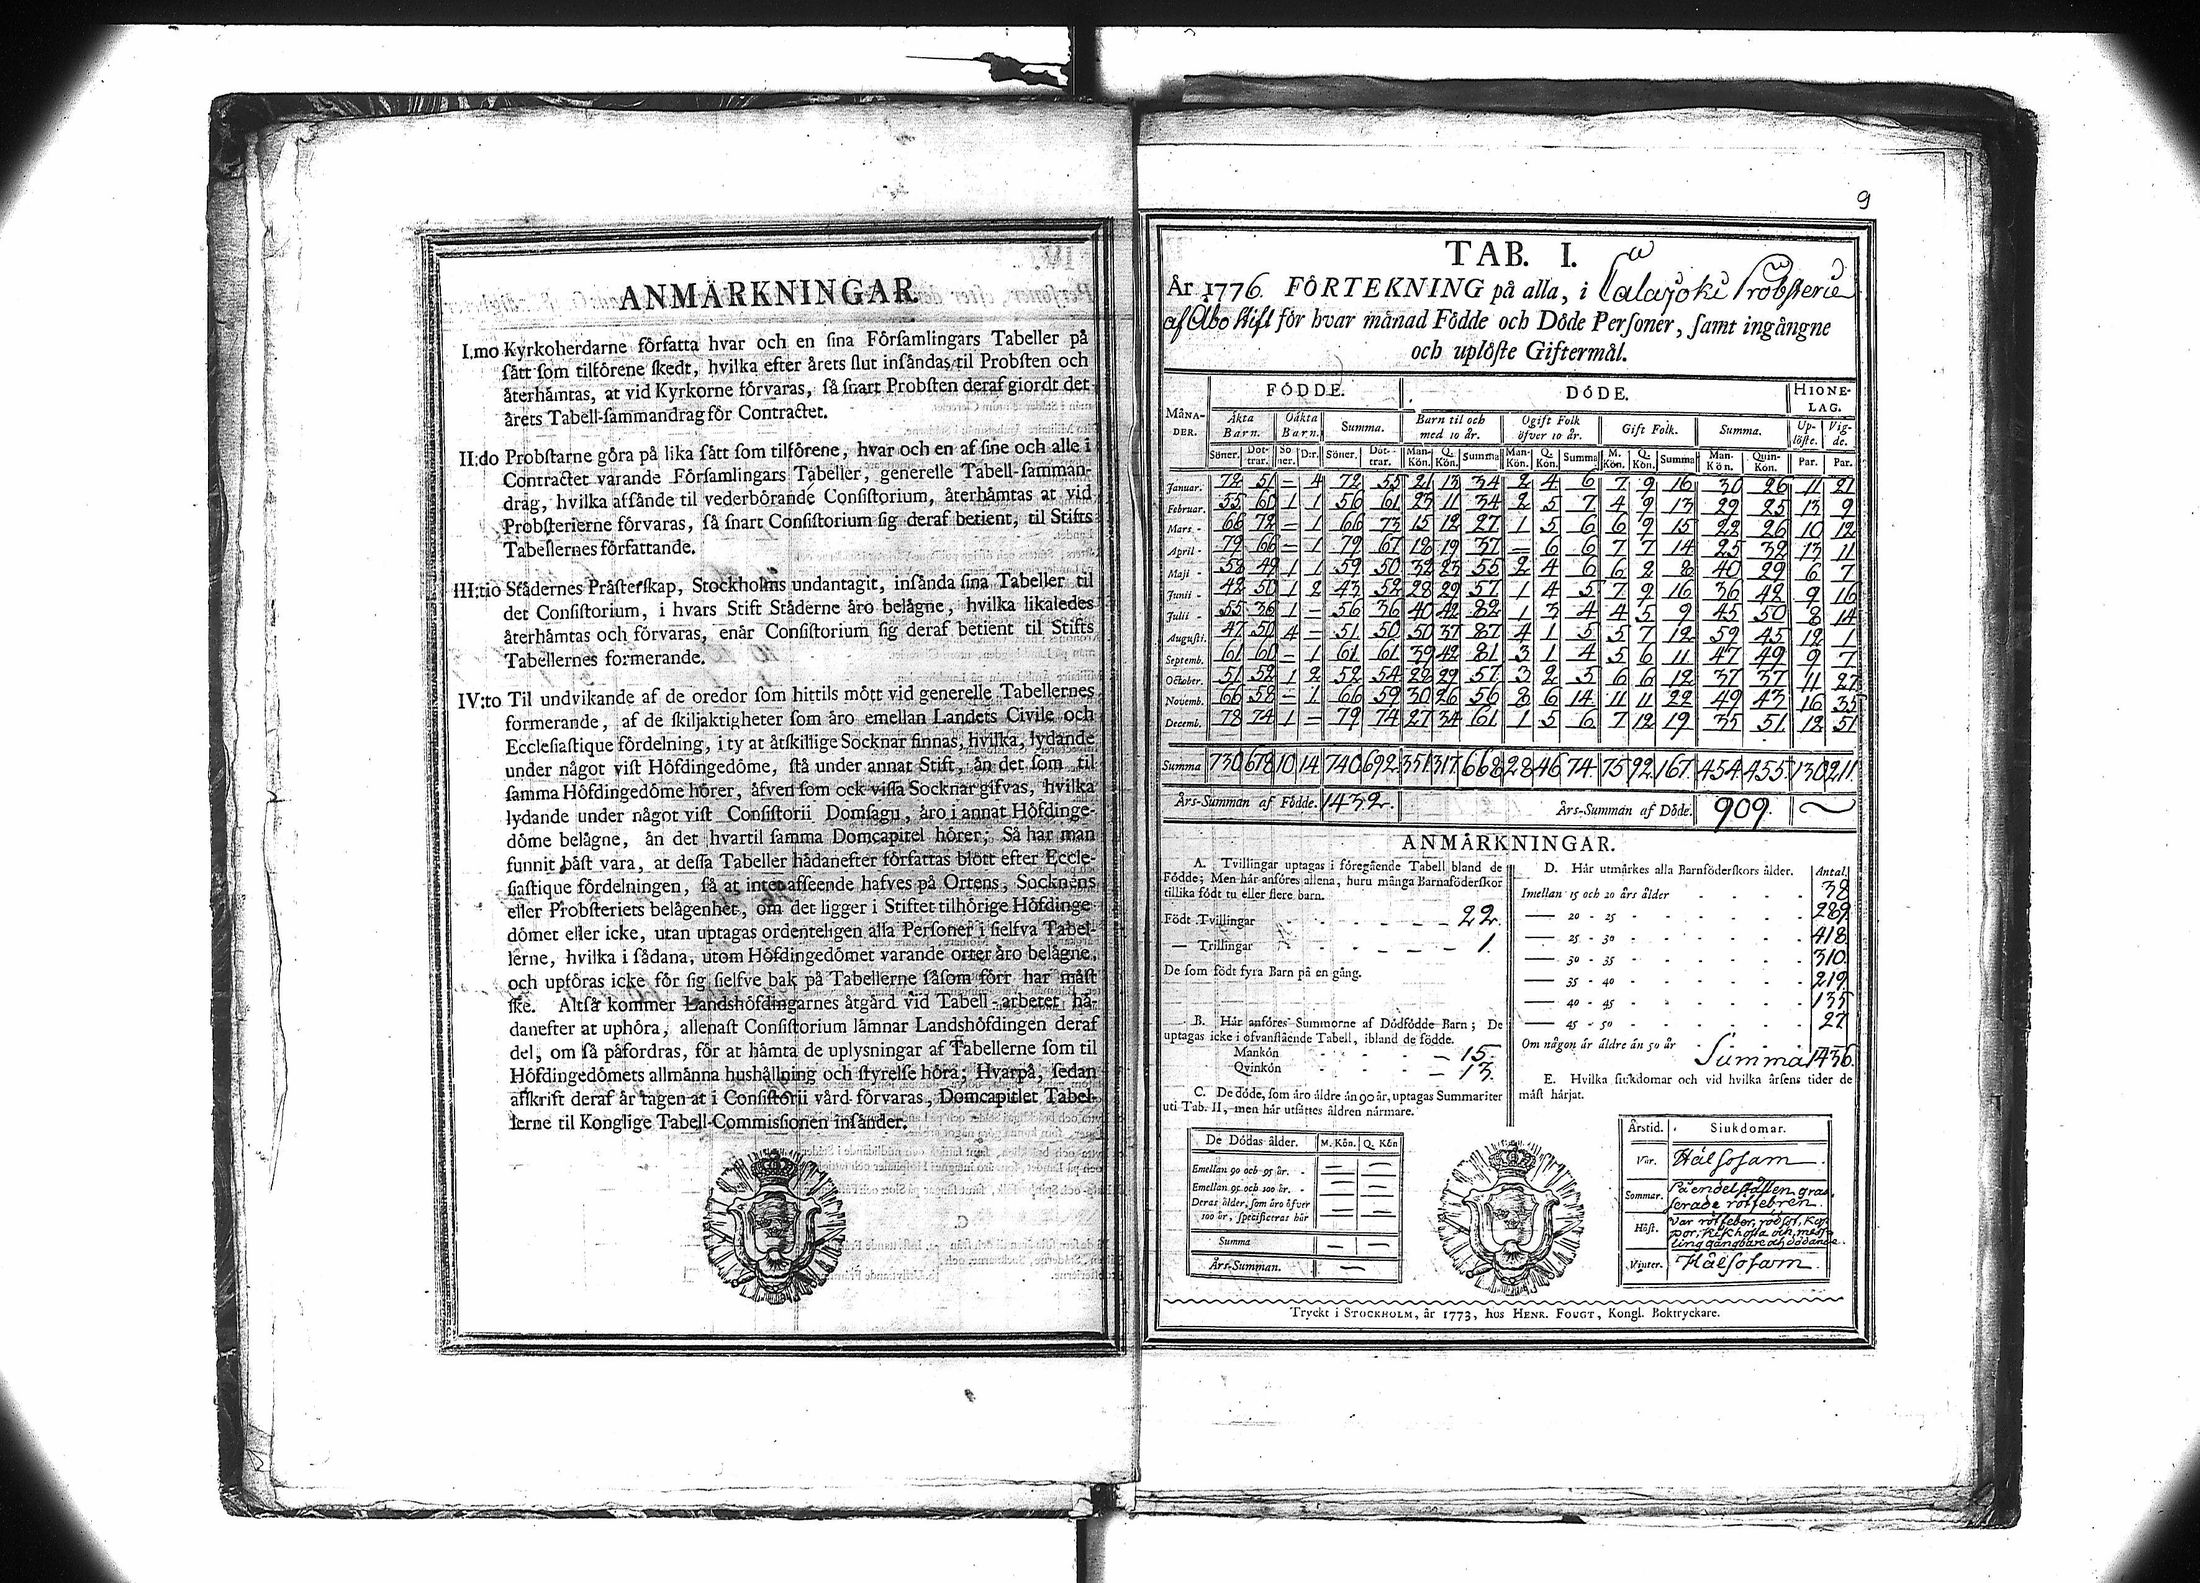 ANMÄRKNINGAR.
I.mo Kyrkoherdarne författa hvar och en sina Församlingars Tabeller på
sätt som tilförene skedt, hvilka efter årets slut insändas til Probsten och
återhämtas, at vid Kyrkorne förvaras, så snart Probsten deraf giordt det
årets Tabell-sammandrag för Contractet.
II:do Probstarne göra på lika sätt som tilförene, hvar och en af sine och alle i
Contractet varande Församlingars Tabeller, generelle Tabell-samman-
drag, hvilka afsände til vederbörande Consistorium, återhämtas at vid
Probsterierne förvaras, så snart Consistorium sig deraf betient, til Stifts
Tabellernes författande.
III:tio Städernes Prästerskap, Stockholms undantagit, insända sina Tabeller til
det Consistorium, i hvars Stift Städerne äro belägne, hvilka likaledes
återhämtas och förvaras, enär Consistorium sig deraf betient til Stifts
Tabellernes formerande.
IV:to Til undvikande af de oredor som hittils mött vid generelle Tabellernes
formerande, af de skiljaktigheter som äro emellan Landets Civile och
Ecclesiastique fördelning, i ty at åtskillige Socknar finnas, hvilka, lydande
under något vist Höfdingedöme, stå under annat Stift, än det som til
samma Höfdingedöme hörer, äfven som ock vissa Socknar gifvas, hvilka
lydande under något vist Consistorii Domsagu, äro i annat Höfdinge-
döme belägne, än det hvartil samma Domcapitel hörer; Så har man
funnit bäst vara, at dessa Tabeller hädanefter författas blott efter Eccle-
siastique fördelningen, så at intet afseende hafves på Ortens, Socknens
eller Probsteriets belägenhet, om det ligger i Stiftet tilhörige Höfdinge
dömet eller icke, utan uptagas ordenteligen alla Personer i sielfva Tabel-
lerne, hvilka i sådana, utom Höfdingedömet varande orter äro belägne,
och upföras icke för sig sielfve bak på Tabellerne såsom förr har måst
ske. Altså kommer Landshöfdingarnes åtgärd vid Tabell-arbetet hä-
danefter at uphöra, allenast Consistorium lämnar Landshöfdingen deraf
del, om så påfordras, för at hämta de uplysningar af Tabellerne som til
Höfdingedömets allmänna hushållning och styrelse höra; Hvarpå, sedan
afskrift deraf är tagen at i Consistorii vård förvaras, Domcapitlet Tabel-
lerne til Konglige Tabell-Commissionen insänder.
9
TAB. I.
År 1776. FÖRTEKNING på alla, i Calajoki Probsterie
af Åbo Stift för hvar månad Födde och Döde Personer, samt ingångne
och uplöste Giftermål.
MÅNA-DER. FÖDDE. DÖDE. HIONE-LAG.
Äkta Barn. Oäkta Barn. Summa. Barn til och med 10 år. Ogift Folk öfver 10 år. Gift Folk. Summa. Up-löste. Vig-de.
Söner. Döt-trar. Sö ner. D:r. Söner. Döt-trar. Man-Kön. Q. Kön. Summa Man-Kön. Q. Kön. Summa M. Kön. Q. Kön. Summa Man-Kön. Quin-Kön. Par. Par.
Januar. 72 51 – 4 72 55 21 13 34 2 4 6 7 9 16 30 26 11 21
Februar. 55 60 1 1 56 61 23 11 34 2 5 7 4 9 13 29 25 13 9
Mars. 66 72 – 1 66 73 15 12 27 1 5 6 6 9 15 22 26 10 12
April 79 66 – 1 79 67 18 19 37 – 6 6 7 7 14 25 32 13 11
Maji 58 49 1 1 59 50 32 23 55 2 4 6 6 2 8 40 29 6 7
Junii 42 50 1 2 43 52 28 29 57 1 4 5 7 9 16 36 42 9 16
Julii 55 36 1 – 56 36 40 42 82 1 3 4 4 5 9 45 50 8 14
Augusti. 47 50 4 – 51 50 50 37 87 4 1 5 5 7 12 59 45 12 1
Septemb. 61 60 – 1 61 61 39 42 81 3 1 4 5 6 11 47 49 9 7
October. 51 52 1 2 52 54 28 29 57 3 2 5 6 6 12 37 37 11 27
Novemb. 66 58 – 1 66 59 30 26 56 8 6 14 11 11 22 49 43 16 35
Decemb. 78 74 1 – 79 74 27 34 61 1 5 6 7 12 19 35 51 12 51
Summa 730 678 10 14 740 692 351 317 668 28 46 74 75 92 167 454 455 130 211
Års-Summan af Födde. 1432. Års-Summan af Döde. 909.
ANMÄRKNINGAR.
A. Tvillingar uptagas i föregående Tabell bland de
Födde; Men här anföres allena, huru många Barnaföderskor
tillika födt tu eller flere barn.
Födt Tvillingar 22.
— Trillingar 1.
De som födt fyra Barn på en gång.
B. Här anföres Summorne af Dödfödde Barn; De
uptagas icke i ofvanstående Tabell, ibland de födde.
Mankön 15.
Qvinkön 13.
C. De döde, som äro äldre än 90 år, uptagas Summariter
uti Tab. II, men här utsättes åldren närmare.
De Dödas ålder. M. Kön. Q. Kön
Emellan 90 och 95 år. — —
Emellan 95 och 100 år. — —
Deras ålder, som äro öfver — —
100 år, specificeras här — —
Summa — —
Års-Summan. —
D. Här utmärkes alla Barnföderskors ålder. Antal.
Imellan 15 och 20 års ålder 38
— 20 - 25 289
— 25 - 30 418
— 30 - 35 310
— 35 - 40 219
— 40 - 45 135
— 45 - 50 27
Om någon är äldre än 50 år
Summa 1436.
E. Hvilka siukdomar och vid hvilka årsens tider de
mäst härjat.
Årstid. Siukdomar.
Vår. Hälsosam
Sommar. På en del ställen gras-
serade rötfebren.
Höst. Var rötfeber, rödsot, Kop-
por, Kikhosta och mäss-
ling gångbare och dödande.
Vinter. Hälsosam
Tryckt i STOCKHOLM, år 1773, hos HENR. FOUGT, Kongl. Boktryckare.